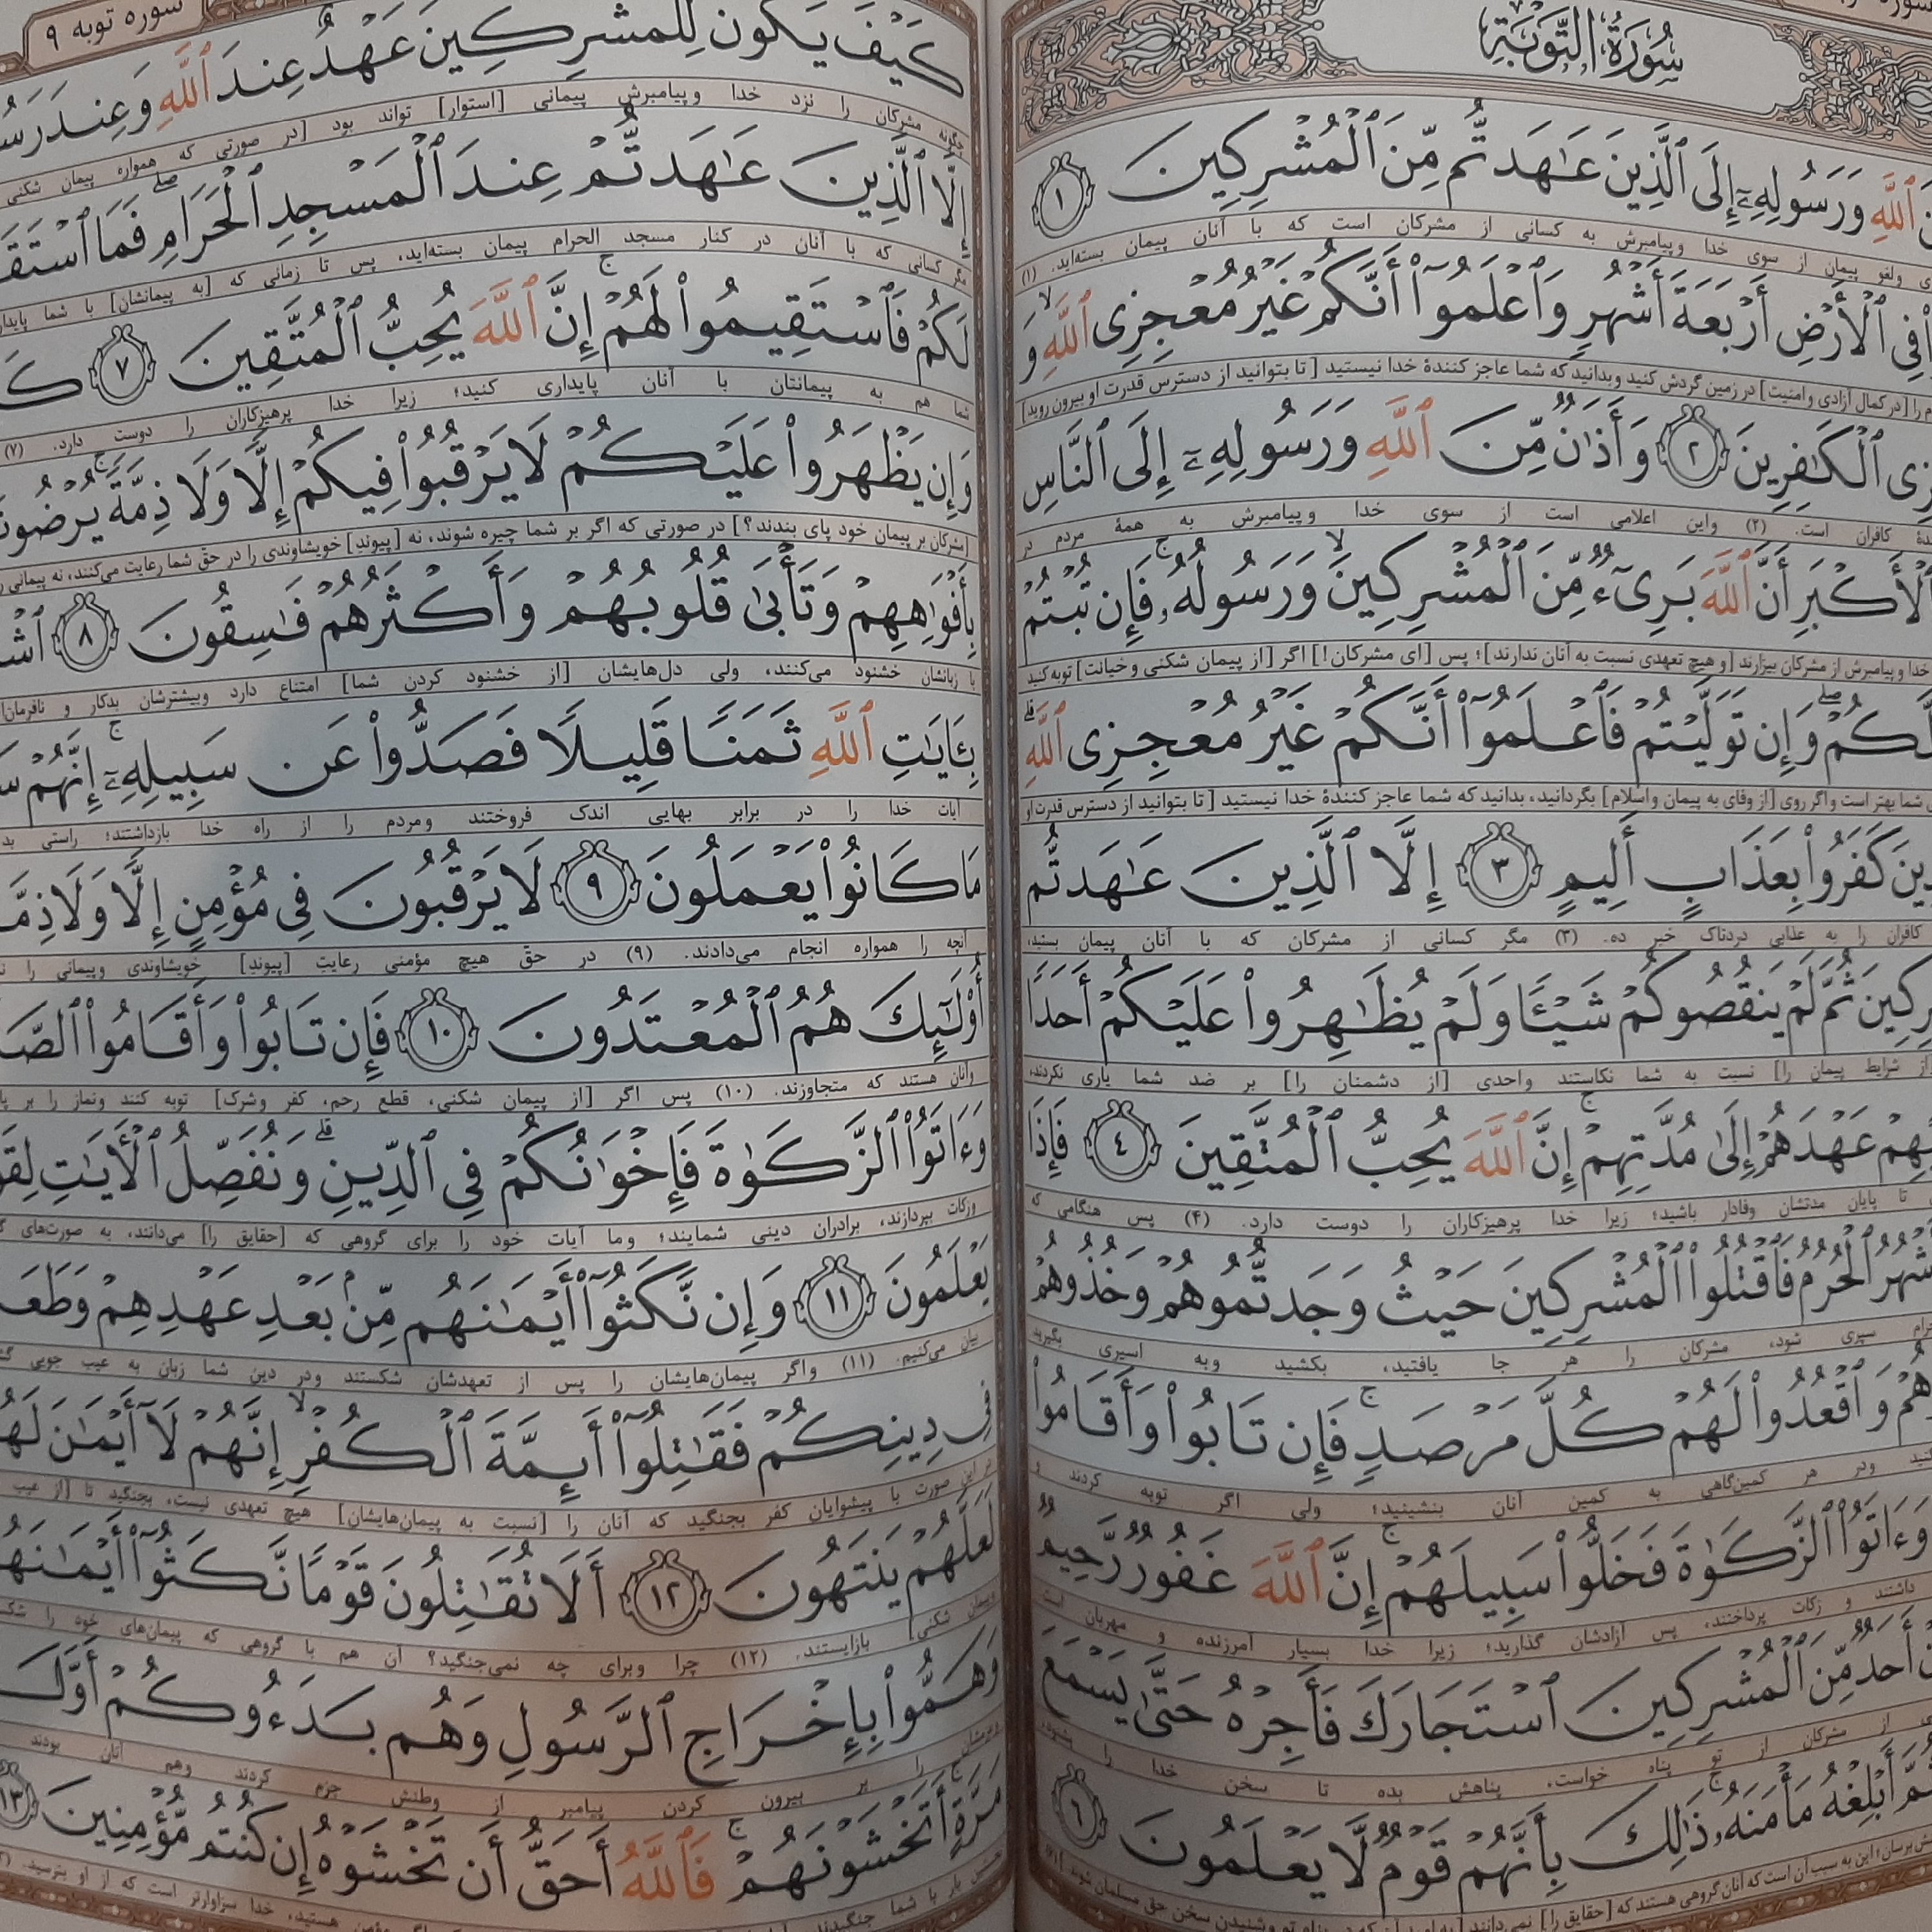 سُورَةُ التَّوبَةِ
ٱللَّهِ وَرَسُولِهِۦٓ إِلَى ٱلَّذِينَ عَـٰهَدتُّم مِّنَ ٱلْمُشْرِكِينَ ١
ولغو پیمان از سوی خدا وپیامبرش به کسانی از مشرکان است که با آنان پیمان بسته‌اید. (۱)
فِى ٱلْأَرْضِ أَرْبَعَةَ أَشْهُرٍ وَٱعْلَمُوٓا۟ أَنَّكُمْ غَيْرُ مُعْجِزِى ٱللَّهِ ۙ وَ
را [در کمال آزادی وامنیت] در زمین گردش کنید وبدانید که شما عاجز کنندۀ خدا نیستید [تا بتوانید از دسترس قدرت او بیرون روید]
ٱلْكَـٰفِرِينَ ٢ وَأَذَٰنٌ مِّنَ ٱللَّهِ وَرَسُولِهِۦٓ إِلَى ٱلنَّاسِ
کافران است. (۲) واین اعلامی است از سوی خدا وپیامبرش به همۀ مردم در
ٱلْأَكْبَرِ أَنَّ ٱللَّهَ بَرِىٓءٌ مِّنَ ٱلْمُشْرِكِينَ ۙ وَرَسُولُهُۥ ۚ فَإِن تُبْتُمْ
خدا وپیامبرش از مشرکان بیزارند [و هیچ تعهدی نسبت به آنان ندارند]؛ پس [ای مشرکان!] اگر [از پیمان شکنی وخیانت] توبه کنید
لَّكُمْ ۖ وَإِن تَوَلَّيْتُمْ فَٱعْلَمُوٓا۟ أَنَّكُمْ غَيْرُ مُعْجِزِى ٱللَّهِ ۗ
شما بهتر است واگر روی [از وفای به پیمان واسلام] بگردانید، بدانید که شما عاجز کنندۀ خدا نیستید [تا بتوانید از دسترس قدرت او
كَفَرُوا۟ بِعَذَابٍ أَلِيمٍ ٣ إِلَّا ٱلَّذِينَ عَـٰهَدتُّم
کافران را به عذابی دردناک خبر ده. (۳) مگر کسانی از مشرکان که با آنان پیمان بستید،
ثُمَّ لَمْ يَنقُصُوكُمْ شَيْـًٔا وَلَمْ يُظَـٰهِرُوا۟ عَلَيْكُمْ أَحَدًا
از شرایط پیمان را] نسبت به شما نکاستند واحدی [از دشمنان را] بر ضد شما یاری نکردند،
عَهْدَهُمْ إِلَىٰ مُدَّتِهِمْ ۚ إِنَّ ٱللَّهَ يُحِبُّ ٱلْمُتَّقِينَ ٤ فَإِذَا
تا پایان مدتشان وفادار باشید؛ زیرا خدا پرهیزکاران را دوست دارد. (۴) پس هنگامی که
ٱلْحُرُمُ فَٱقْتُلُوا۟ ٱلْمُشْرِكِينَ حَيْثُ وَجَدتُّمُوهُمْ وَخُذُوهُمْ
سپری شود، مشرکان را هر جا یافتید، بکشید وبه اسیری بگیرید
وَٱقْعُدُوا۟ لَهُمْ كُلَّ مَرْصَدٍ ۚ فَإِن تَابُوا۟ وَأَقَامُوا۟
ودر هر کمین‌گاهی به کمین آنان بنشینید؛ ولی اگر توبه کردند و
وَءَاتَوُا۟ ٱلزَّكَوٰةَ فَخَلُّوا۟ سَبِيلَهُمْ ۚ إِنَّ ٱللَّهَ غَفُورٌ رَّحِيمٌ
داشتند و زکات پرداختند، پس آزادشان گذارید؛ زیرا خدا بسیار آمرزنده و مهربان است
أَحَدٌ مِّنَ ٱلْمُشْرِكِينَ ٱسْتَجَارَكَ فَأَجِرْهُ حَتَّىٰ يَسْمَعَ
از مشرکان از تو پناه خواست، پناهش بده تا سخن خدا را بشنود،
أَبْلِغْهُ مَأْمَنَهُۥ ۚ ذَٰلِكَ بِأَنَّهُمْ قَوْمٌ لَّا يَعْلَمُونَ ٦
این به سبب آن است که آنان گروهی هستند که [حقایق را] نمی‌دانند
سوره توبه ۹
كَيْفَ يَكُونُ لِلْمُشْرِكِينَ عَهْدٌ عِندَ ٱللَّهِ وَعِندَ
چگونه مشرکان را نزد خدا وپیامبرش پیمانی [استوار] تواند بود [در صورتی که همواره پیمان شکنی
إِلَّا ٱلَّذِينَ عَـٰهَدتُّمْ عِندَ ٱلْمَسْجِدِ ٱلْحَرَامِ ۖ فَمَا
مگر کسانی که با آنان در کنار مسجد الحرام پیمان بسته‌اید، پس تا زمانی که [به پیمانشان] با شما
لَكُمْ فَٱسْتَقِيمُوا۟ لَهُمْ ۚ إِنَّ ٱللَّهَ يُحِبُّ ٱلْمُتَّقِينَ ٧
شما هم به پیمانتان با آنان پایداری کنید؛ زیرا خدا پرهیزکاران را دوست دارد. (۷)
وَإِن يَظْهَرُوا۟ عَلَيْكُمْ لَا يَرْقُبُوا۟ فِيكُمْ إِلًّا وَلَا ذِمَّةً ۚ
[مشرکان بر پیمان خود پای بندند؟] در صورتی که اگر بر شما چیره شوند، نه [پیوند] خویشاوندی را در حقّ شما رعایت می‌کنند، نه پیمانی
بِأَفْوَٰهِهِمْ وَتَأْبَىٰ قُلُوبُهُمْ وَأَكْثَرُهُمْ فَـٰسِقُونَ ٨
با زبانشان خشنود می‌کنند، ولی دل‌هایشان [از خشنود کردن شما] امتناع دارد وبیشترشان بدکار و
بِـَٔايَـٰتِ ٱللَّهِ ثَمَنًا قَلِيلًا فَصَدُّوا۟ عَن سَبِيلِهِۦٓ ۚ إِنَّهُمْ
آیات خدا را در برابر بهایی اندک فروختند ومردم را از راه خدا بازداشتند؛ راستی بد
مَا كَانُوا۟ يَعْمَلُونَ ٩ لَا يَرْقُبُونَ فِى مُؤْمِنٍ إِلًّا وَلَا
آنچه را همواره انجام می‌دادند. (۹) در حقّ هیچ مؤمنی رعایت [پیوند] خویشاوندی وپیمانی را
أُو۟لَـٰٓئِكَ هُمُ ٱلْمُعْتَدُونَ ١٠ فَإِن تَابُوا۟ وَأَقَامُوا۟
وآنان هستند که متجاوزند. (۱۰) پس اگر [از پیمان شکنی، قطع رحم، کفر وشرک] توبه کنند ونماز را بر
وَءَاتَوُا۟ ٱلزَّكَوٰةَ فَإِخْوَٰنُكُمْ فِى ٱلدِّينِ ۗ وَنُفَصِّلُ ٱلْـَٔايَـٰتِ
وزکات بپردازند، برادران دینی شمایند؛ وما آیات خود را برای گروهی که [حقایق را] می‌دانند، به صورت‌های
يَعْلَمُونَ ١١ وَإِن نَّكَثُوٓا۟ أَيْمَـٰنَهُم مِّنۢ بَعْدِ عَهْدِهِمْ
بیان می‌کنیم. (۱۱) واگر پیمان‌هایشان را پس از تعهدشان شکستند ودر دین شما زبان به عیب جویی
فِى دِينِكُمْ فَقَـٰتِلُوٓا۟ أَئِمَّةَ ٱلْكُفْرِ ۙ إِنَّهُمْ لَآ أَيْمَـٰنَ
در این صورت با پیشوایان کفر بجنگید که آنان را [نسبت به پیمان‌هایشان] هیچ تعهدی نیست، بجنگید تا [از عیب
لَعَلَّهُمْ يَنتَهُونَ ١٢ أَلَا تُقَـٰتِلُونَ قَوْمًا نَّكَثُوٓا۟ أَيْمَـٰنَهُ
وپیمان شکنی] بازایستند. (۱۲) چرا وبرای چه نمی‌جنگید؟ آن هم با گروهی که پیمان‌های خود را
وَهَمُّوا۟ بِإِخْرَاجِ ٱلرَّسُولِ وَهُم بَدَءُوكُمْ أَوَّلَ
را بر بیرون کردن پیامبر از وطنش جزم کردند وهم آنان بودند
مَرَّةٍ ۚ أَتَخْشَوْنَهُمْ ۚ فَٱللَّهُ أَحَقُّ أَن تَخْشَوْهُ إِن كُنتُم مُّؤْمِنِينَ ١٣
بار با شما جنگیدند خدا سزاوارتر است که از او بترسید.